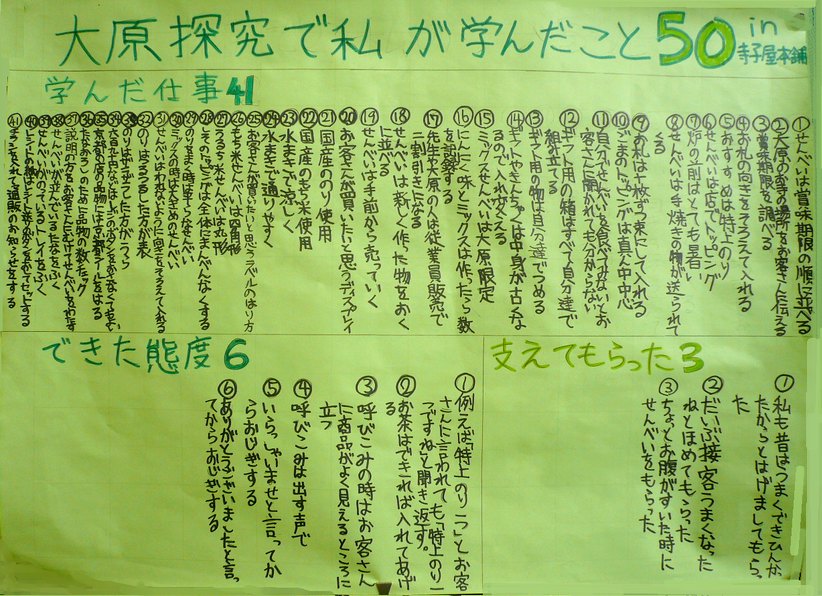 大原探究で私が学んだこと50 in 寺子屋本舗
学んだ仕事41
①せんべいは賞味期限の順に並べる
②大原の寺の場所をお客さんに伝える
③賞味期限を調べる
④お札の向きをそろえて入れる
⑤おすすめは特上のり
⑥せんべいは店でトッピング
⑦炉の前はとても暑い
⑧せんべいは手焼きの物が送られて
くる
⑨お札は十枚ずつ束にして入れる
⑩ごまのトッピングは真ん中中心
⑪自分がせんべいを食べてみないとお
客さんに聞かれても分からない
⑫ギフト用の箱はすべて自分達で
組み立てる
⑬ギフト用の物は自分達でつめる
⑭ギフトやきんちゃくは中身が古くな
るので入れかえる
⑮ミックスせんべいは大原限定
⑯にんにく味とミックスは作ったら数
を記録する
⑰先生や大原の人は従業員販売で
二割引きになる
⑱せんべいは新しく作った物をおく
に並べる
⑲せんべいは手前から売っていく
⑳お客さんが買いたいと思うディスプレイ
㉑国産ののり使用
㉒国産のもち米使用
㉓水まきで涼しく
㉔水まきで通りやすく
㉕お客さんが買いたいと思うラベルのはり方
㉖もち米せんべいは四角形
㉗うるち米せんべいは丸形
㉘しそのトッピングは全体にまんべんなくする
㉙のりをまく時は手でさわらない
㉚ミックスの時は大きめのせんべい
㉛せんべいはわれないように向きをそろえて入れる
㉜のりはつるつるした方が表
できた態度6
①例えば「特上のり一つ」とお客
さんに言われても「特上のり一
つですね」と聞き返す。
②お茶はできれば入れてあげ
る
③呼びこみの時はお客さん
に商品がよく見えるところに
立つ
④呼びこみは出す声で
⑤いらっしゃいませと言ってか
らおじぎする
⑥ありがとうございましたと言っ
てからおじぎする
支えてもらった3
①私も昔はうまくできひんか
たからとはげましてもらっ
た
②だいぶ接客うまくなった
ねとほめてもらった
③ちょっとお腹がすいた時に
せんべいをもらった